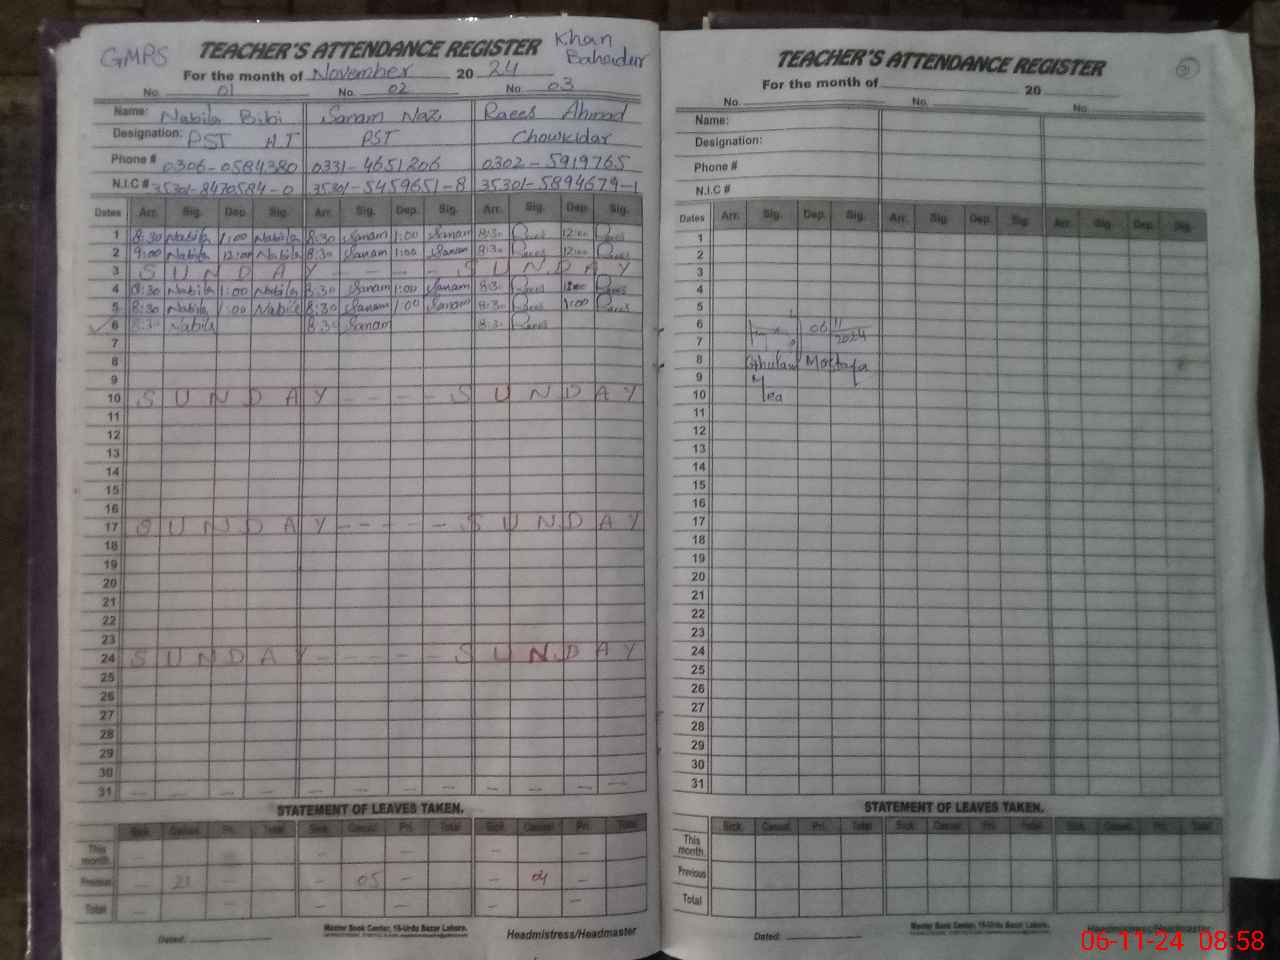 GMPS TEACHER'S ATTENDANCE REGISTER Khan Bahadur
For the month of November 20 24
No. 01 No. 02 No. 03
Name: Nabila Bibi Sanam Naz Raees Ahmad
Designation: PST H.T PST Chowkidar
Phone # 0306-0584380 0331-4651206 0302-5919765
N.I.C # 35301-8470584-0 35301-5459651-8 35301-5894679-1
Dates Arr. Sig. Dep. Sig. Arr. Sig. Dep. Sig. Arr. Sig. Dep. Sig.
1 8:30 Nabila 1:00 Nabila 8:30 Sanam 1:00 Sanam 8:30 Raees 12:00 Raees
2 9:00 Nabila 12:00 Nabila 8:30 Sanam 1:00 Sanam 8:30 Raees 12:00 Raees
3 S U N D A Y - - - - S U N D A Y
4 8:30 Nabila 1:00 Nabila 8:30 Sanam 1:00 Sanam 8:30 Raees 12:00 Raees
5 8:30 Nabila 1:00 Nabila 8:30 Sanam 1:00 Sanam 8:30 Raees 1:00 Raees
6 8:30 Nabila 8:30 Sanam 8:30 Raees
7
8
9
10 S U N D A Y - - - - S U N D A Y
11
12
13
14
15
16
17 S U N D A Y - - - - - S U N D A Y
18
19
20
21
22
23
24 S U N D A Y - - - - - S U N D A Y
25
26
27
28
29
30
31 — — — — — — — — — — — —
STATEMENT OF LEAVES TAKEN.
Sick Casual Pri. Total Sick Casual Pri. Total Sick Casual Pri. Total
This month. — — — — —
Previous — 21 — — 05 — — 04 —
Total — — — — —
Master Book Center, 16-Urdu Bazar Lahore.
Dated: Headmistress/Headmaster
TEACHER'S ATTENDANCE REGISTER
For the month of 20
No. No. No.
Name:
Designation:
Phone #
N.I.C #
Dates Arr. Sig. Dep. Sig. Arr. Sig. Dep. Sig. Arr. Sig. Dep. Sig.
1
2
3
4
5
6 06/11
7 2024
8 Ghulam Mostafa
9
10 Mea
11
12
13
14
15
16
17
18
19
20
21
22
23
24
25
26
27
28
29
30
31
STATEMENT OF LEAVES TAKEN.
Sick Casual Pri. Total Sick Casual Pri. Total Sick Casual Pri. Total
This month.
Previous
Total
Master Book Center, 16-Urdu Bazar Lahore.
Dated: Headmistress/Headmaster
06-11-24 08:58